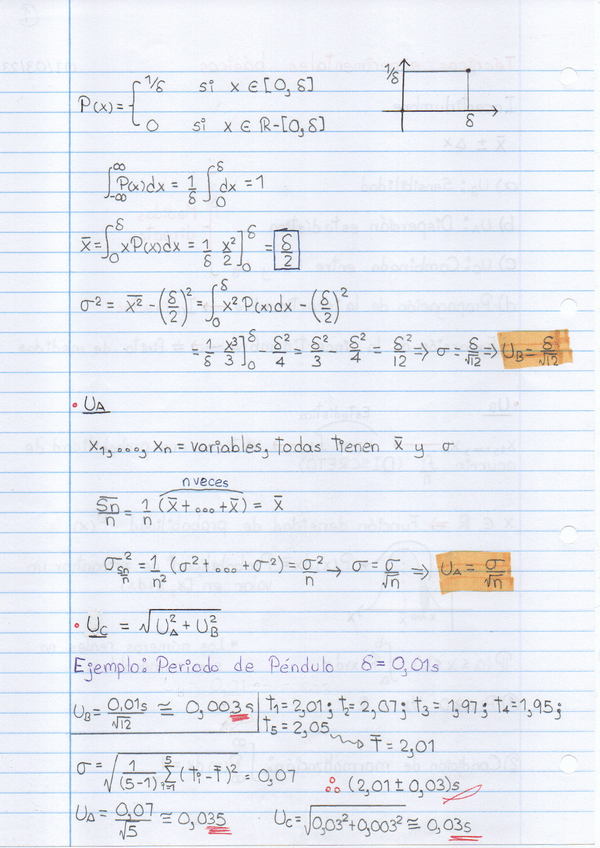 P(x) = { 1/δ si x ∈ [0, δ]
0 si x ∈ ℝ-[0, δ]
1/δ
δ
∫_{-∞}^{∞} P(x)dx = 1/δ ∫_0^δ dx = 1
x̄ = ∫_0^δ xP(x)dx = 1/δ x²/2 ]_0^δ = δ/2
σ² = x̄² - (δ/2)² = ∫_0^δ x² P(x)dx - (δ/2)²
= 1/δ x³/3 ]_0^δ - δ²/4 = δ²/3 - δ²/4 = δ²/12 ⇒ σ = δ/√12 ⇒ U_B = δ/√12
• U_A
x_1, ..., x_n = variables, todas tienen x̄ y σ
n veces
S̄n/n = 1/n (x̄ + ... + x̄) = x̄
σ²_{Sn/n} = 1/n² (σ² + ... + σ²) = σ²/n → σ = σ/√n ⇒ U_A = σ/√n
• U_C = √(U_A² + U_B²)
Ejemplo: Periodo de Péndulo δ = 0,01s
U_B = 0,01s/√12 ≅ 0,003s
t_1 = 2,01; t_2 = 2,07; t_3 = 1,97; t_4 = 1,95;
t_5 = 2,05
T̄ = 2,01
σ = √(1/(5-1) Σ_{i=1}^{5} (t_i - t̄)²) = 0,07
∴ (2,01 ± 0,03)s
U_A = 0,07/√5 ≅ 0,035
U_C = √(0,03² + 0,003²) ≅ 0,03s